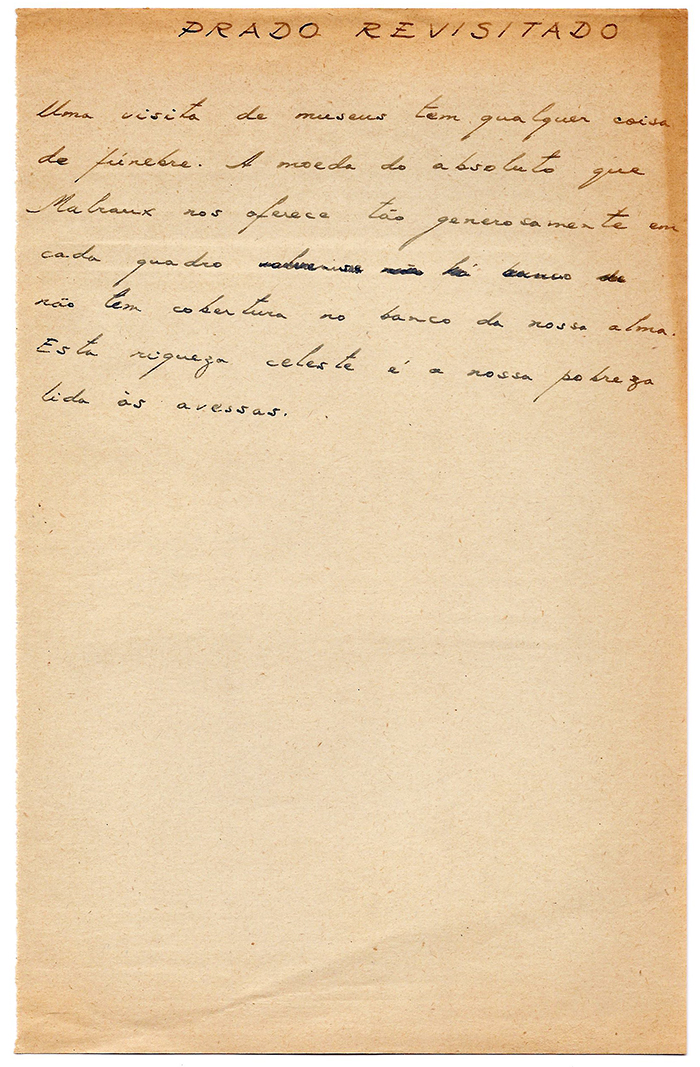 PRADO REVISITADO
Uma visita de museus tem qualquer coisa
de fúnebre. A moeda do absoluto que
Malraux nos oferece tão generosamente em
cada quadro não há banco de
não tem cobertura no banco da nossa alma.
Esta riqueza celeste é a nossa pobreza
lida às avessas.